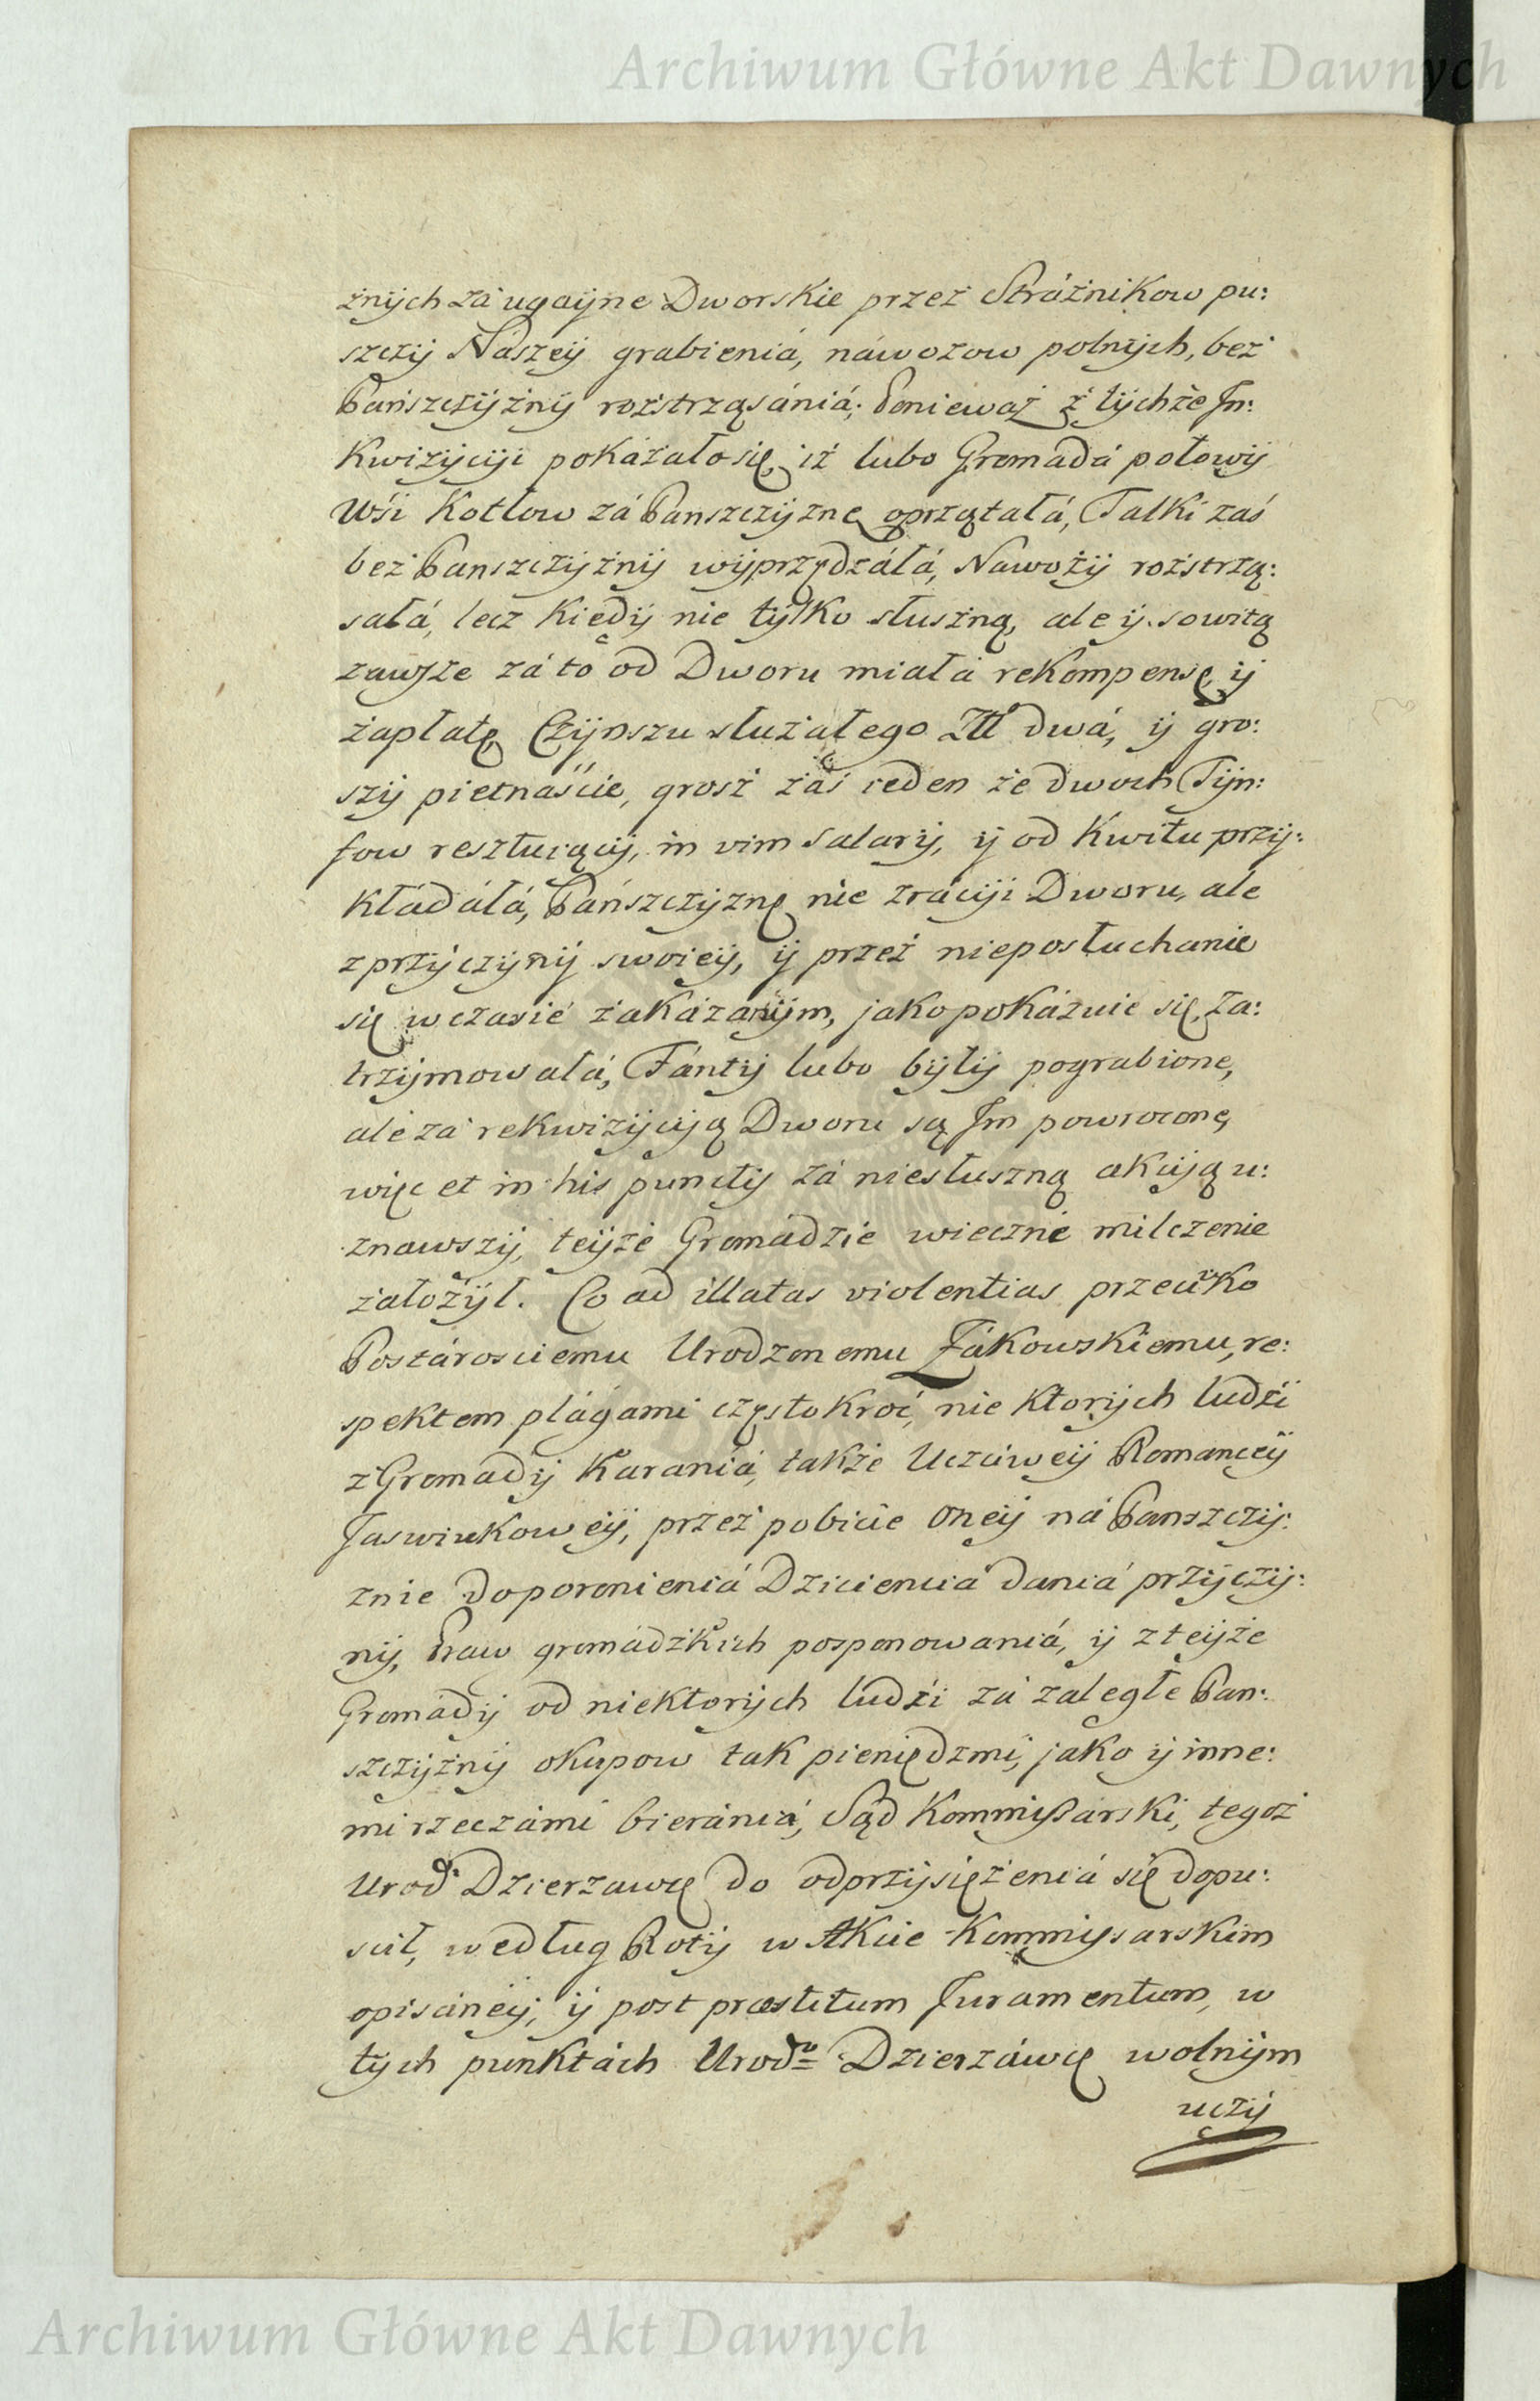 Archiwum Główne Akt Dawnych
żnych zá ugayne Dworskie przez Stráżnikow pu:
szczy Nászey grabieniá, náwozow polnych, bez
Pańszczyżny rozstrząsániá; Ponieważ z tychże In:
kwizycyi pokázało się, iż lubo Gromádá połowy
Wśi Kotłow zá Panszczyznę oprzątałá, Talki zaś
bez Panszczyżny wyprzędzáłá, Nawozy rozstrzą:
sałá, lecz kiedy nie tylko słuszną, ale y sowitą
zawsze zá to od Dworu miałá rekompensę, y
zapłatę Czynszu służałego Złł dwá, y gro:
szy pietnaście, grosz záś ieden ze dwoch Tyn:
fow resztuiący, in vim salary, y od Kwitu przy:
kłádáłá, Páńszczyznę nie z rácyi Dworu, ale
z przyczyny swoiey, y przez nieposłuchanie
się w czasie zakázanym, jako pokázuie się, za:
trzymowałá, Fánty lubo były pograbione,
ale zá rekwizycyą Dworu są Im powrocone,
więc et in his punctis zá niesłuszną akcyą u:
znawszy, teyże Gromádzie wieczne milczenie
założył. Co ad illatas violentias przeciwko
Postárosciemu Urodzonemu Żákowskiemu, re:
spektem plágami częstokroć, nie ktorych ludźi
z Gromády karaniá, także Uczciwey Romancey
Jaswiukowey, przez pobicie oney ná Panszczy:
znie do poronieniá Dzieciencia daniá przyczy:
ny, Praw gromádzkich posponowaniá, y z teyże
Gromády od niektorych ludźi zá zaległe Pan:
szczyżny okupow tak pieniędzmi, jako y inne:
mi rzeczámi bierániá, Sąd Kommissarski, tegoż
Urod: Dzierzawcę do odprzysiężeniá się dopu:
scił, według Roty w Akcie Kommyssarskim
opisáney, y post præstitum Juramentum, w
tych punktách Urodo Dzierzáwcę wolnym
uczy
Archiwum Główne Akt Dawnych